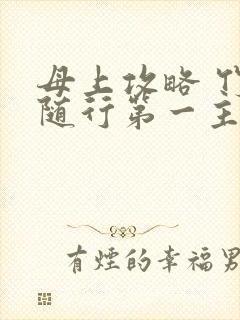 母上攻略
随行第一主
有煙的幸福男